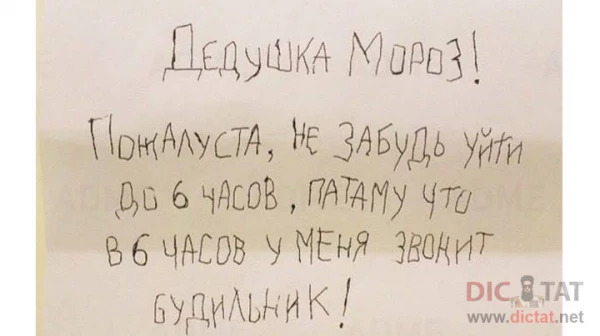 ДЕДУШКА МОРОЗ!
ПОЖАЛУСТА, НЕ ЗАБУДЬ УЙТИ
ДО 6 ЧАСОВ, ПАТАМУ ЧТО
В 6 ЧАСОВ У МЕНЯ ЗВОНИТ
БУДИЛЬНИК!
DICTAT
www.dictat.net